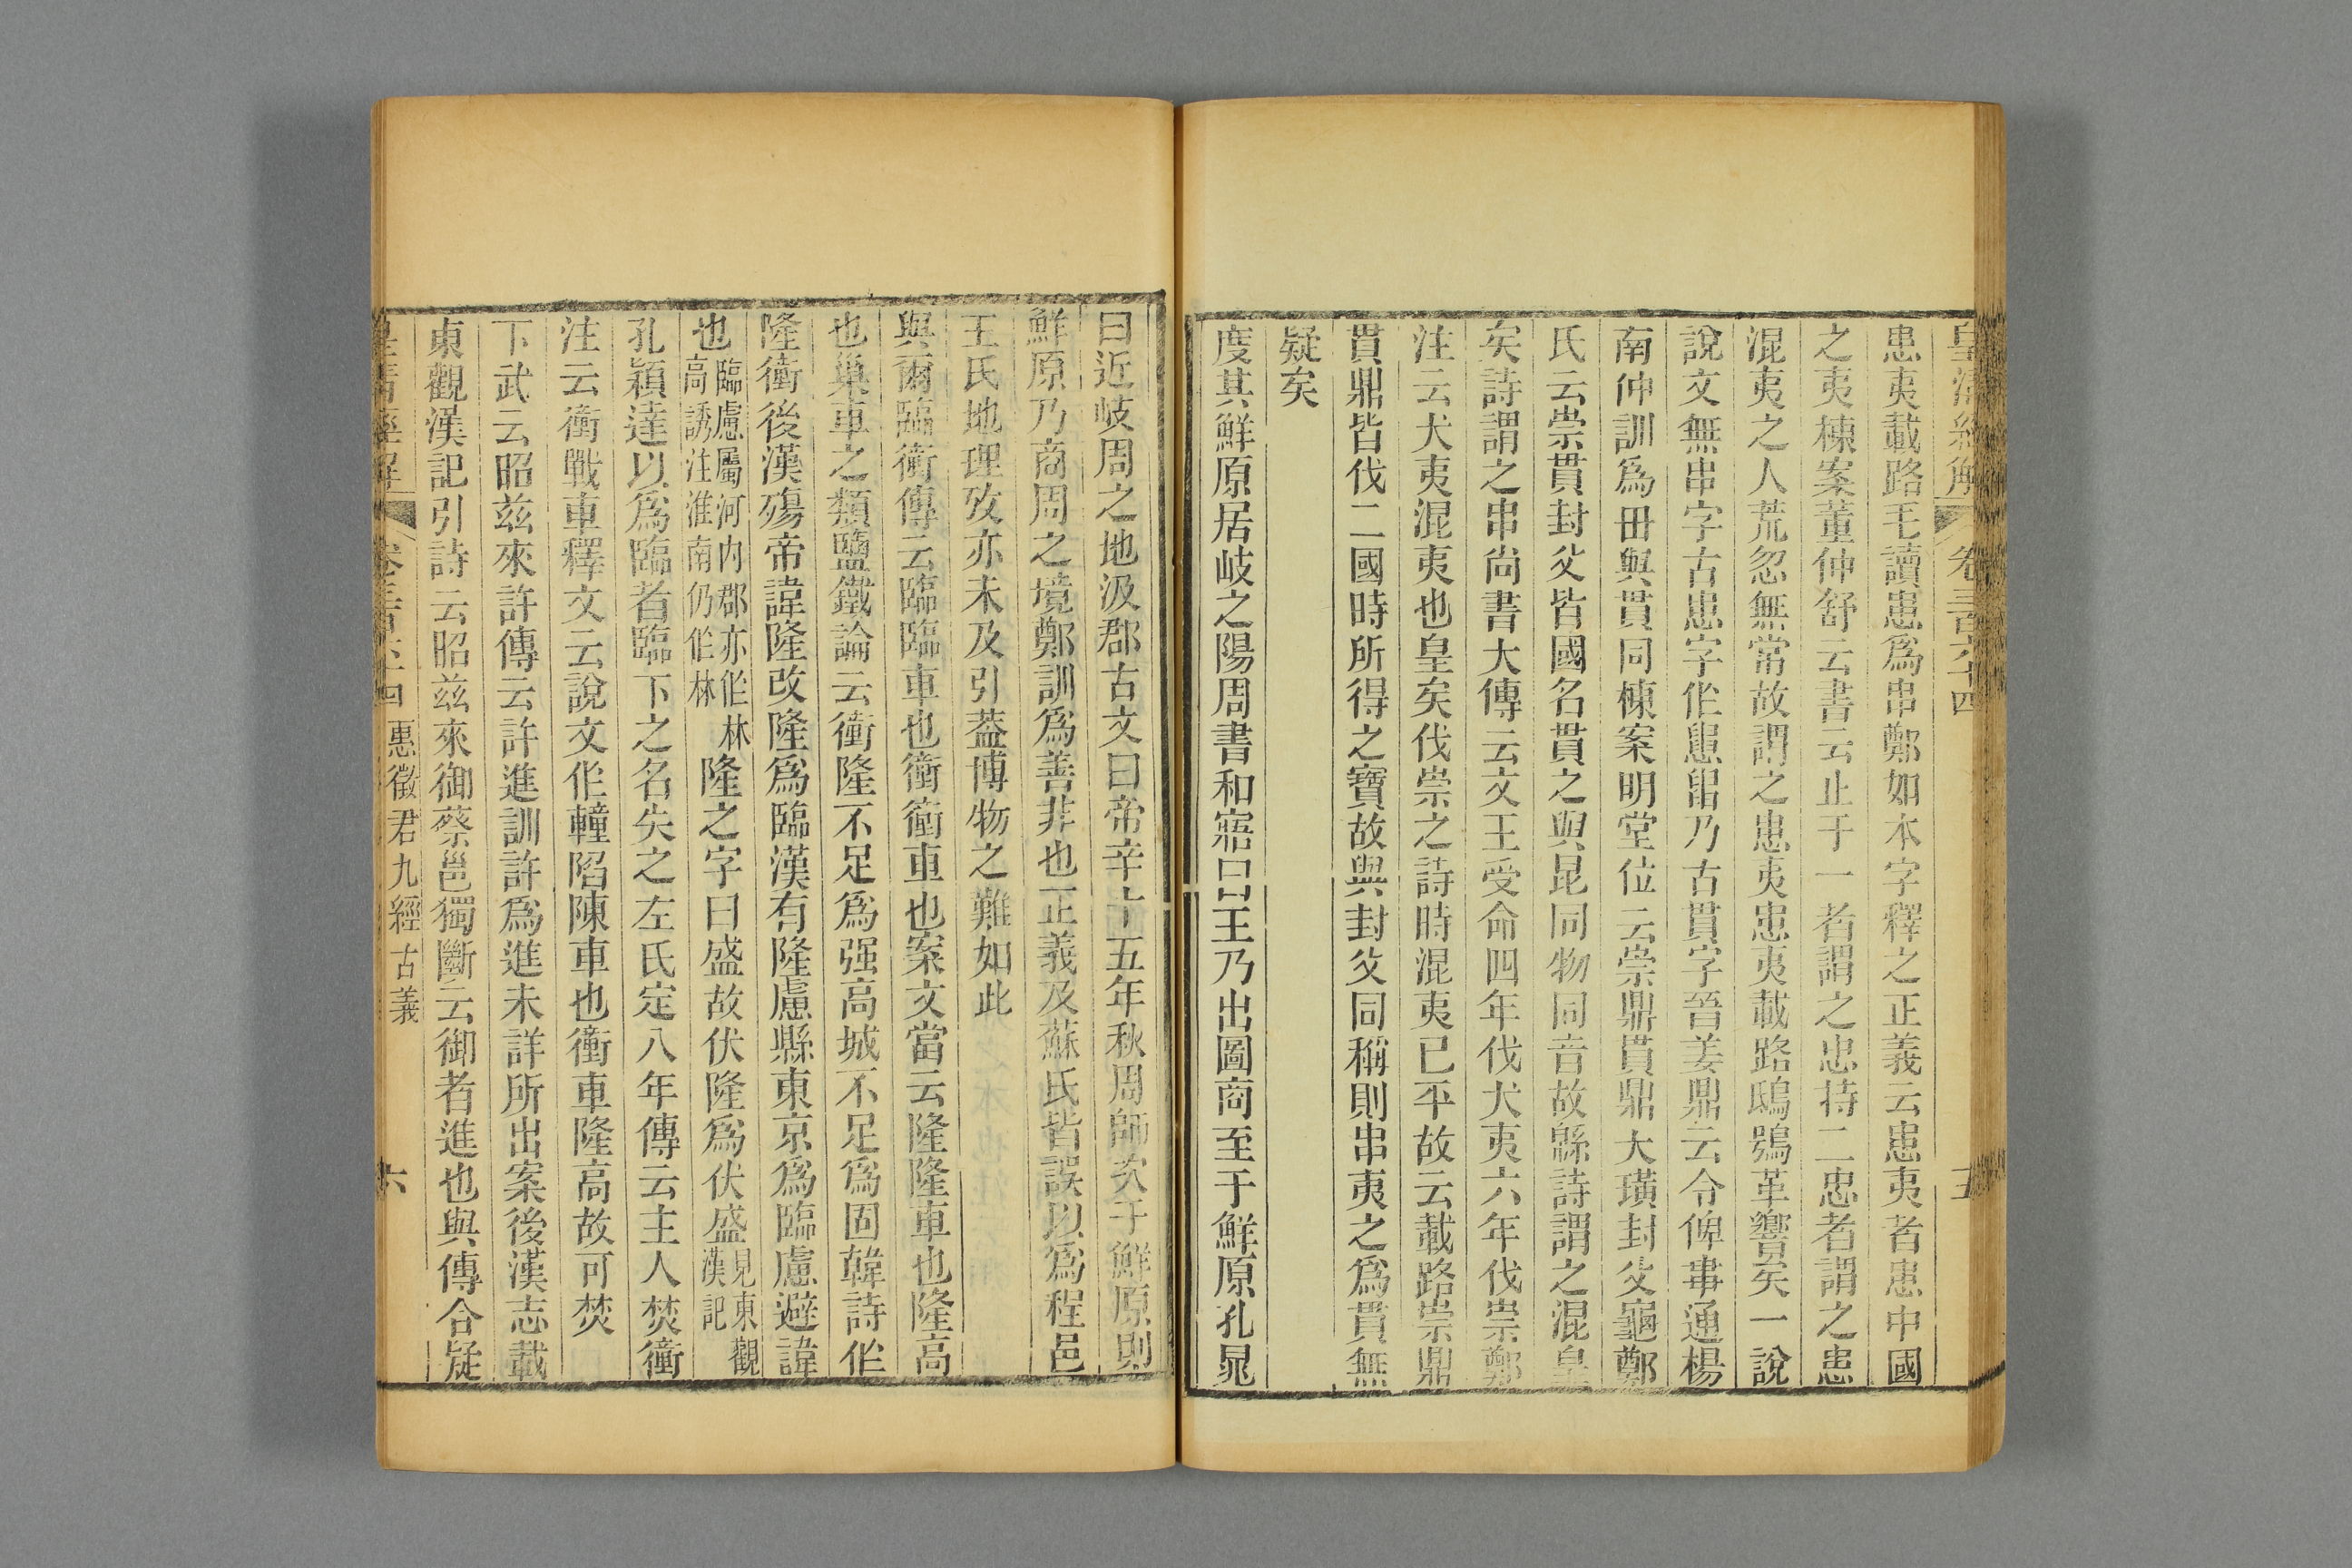 皇清經解 卷三百六十四 五
患夷載路毛讀患爲串鄭如本字釋之正義云患夷者患中國
之夷棟案董仲舒云書云止于一者謂之忠持二忠者謂之患
混夷之人荒忽無常故謂之患夷患夷載路鴟鴞革響矣一說
說文無串字古患字作𢞃𠴨乃古貫字晉姜鼎云令俾𠴨通楊
南仲訓爲毌與貫同棟案明堂位云崇鼎貫鼎大璜封父龜鄭
氏云崇貫封父皆國名貫之與昆同物同音故緜詩謂之混皇
矣詩謂之串尚書大傳云文王受命四年伐犬夷六年伐崇鄭
注云犬夷混夷也皇矣伐崇之詩時混夷已平故云載路崇鼎
貫鼎皆伐二國時所得之寶故與封父同稱則串夷之爲貫無
疑矣
度其鮮原居岐之陽周書和寤曰王乃出圖商至于鮮原孔晁
曰近岐周之地汲郡古文曰帝辛十五年秋周師次于鮮原則
鮮原乃商周之境鄭訓爲善非也正義及蘇氏皆誤以爲程邑
王氏地理攷亦未及引葢博物之難如此
與爾臨衝傳云臨臨車也衝衝車也案文當云隆隆車也隆高
也巢車之類鹽鐵論云衝隆不足爲强高城不足爲固韓詩作
隆衝後漢殤帝諱隆改隆爲臨漢有隆慮縣東京爲臨慮避諱
也臨慮屬河內郡亦作林高誘注淮南仍作林隆之字曰盛故伏隆爲伏盛見東觀漢記
孔穎達以爲臨者臨下之名失之左氏定八年傳云主人焚衝
注云衝戰車釋文云說文作𨎴陷陳車也衝車隆高故可焚
下武云昭兹來許傳云許進訓許爲進未詳所出案後漢志載
東觀漢記引詩云昭兹來御蔡邕獨斷云御者進也與傳合疑
皇清經解 卷三百六十四 惠徵君九經古義 六